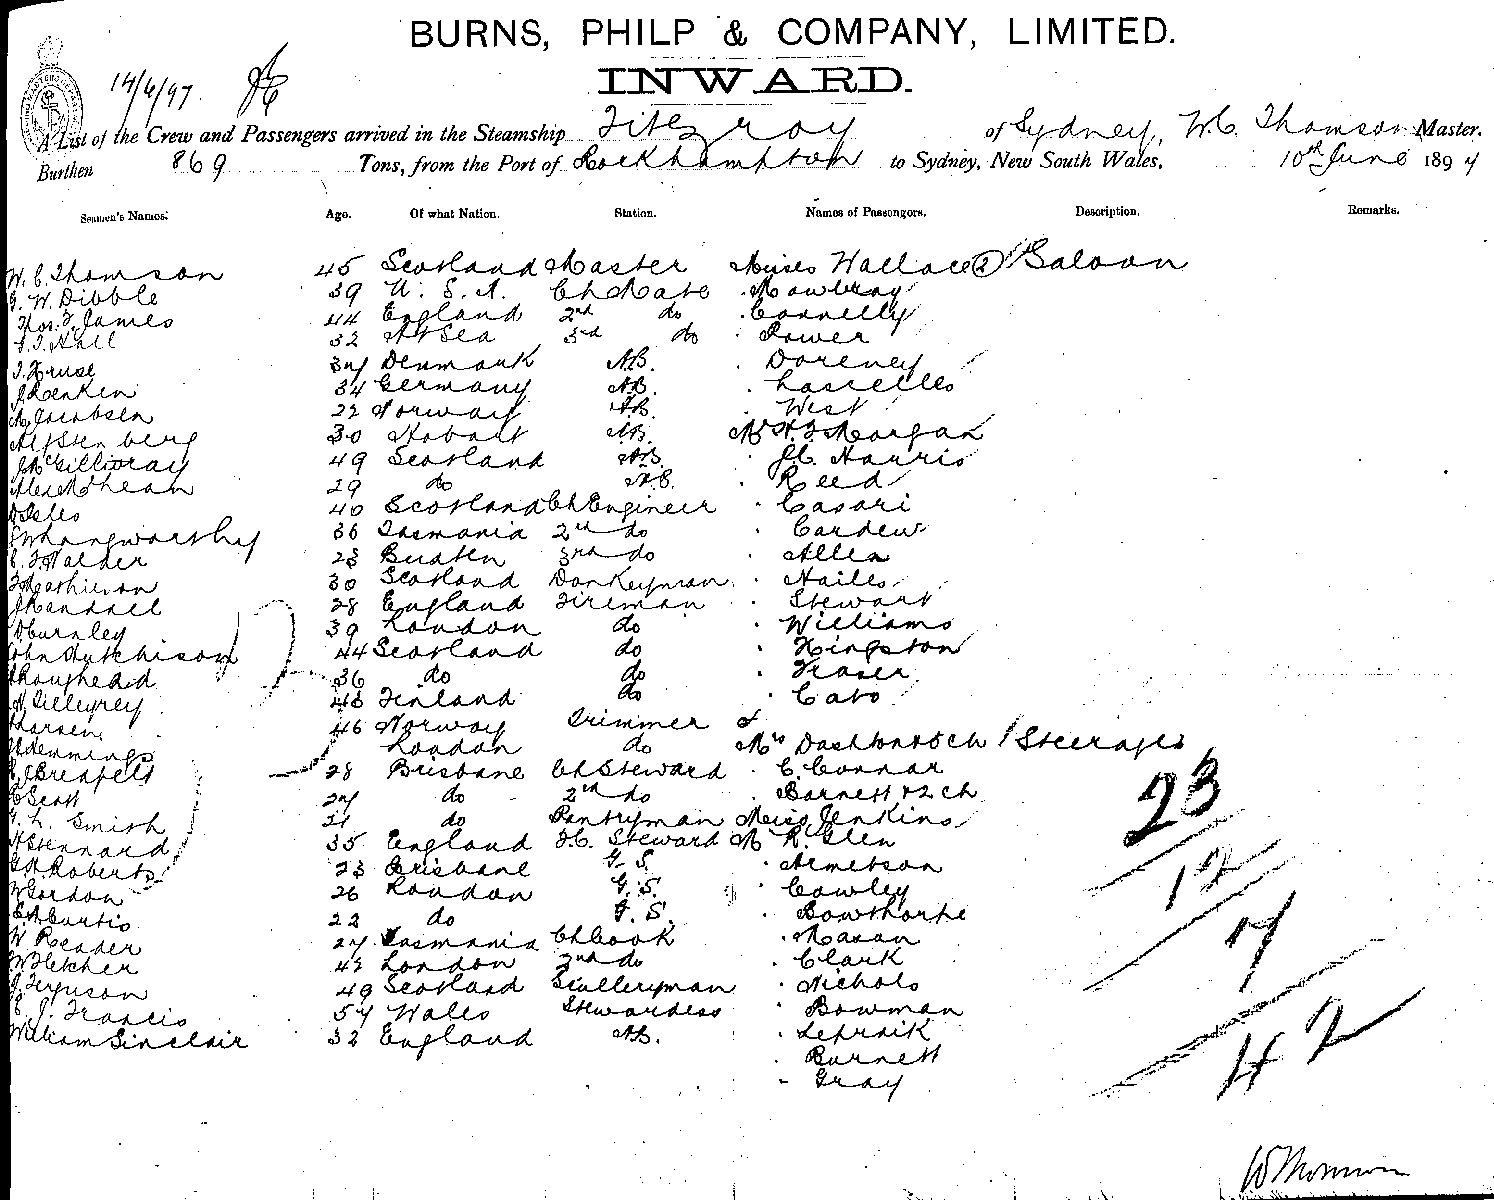 BURNS, PHILP & COMPANY, LIMITED.
INWARD.
14/6/97
A List of the Crew and Passengers arrived in the Steamship Fitzroy of Sydney, W.C. Thomson Master.
Burthen 869 Tons, from the Port of Rockhampton to Sydney, New South Wales, 10th June 1897
Seamen's Names. Age. Of what Nation. Station. Names of Passengers. Description. Remarks.
W. C. Thomson 45 Scotland Master Misses Wallace (2) Saloon
G. W. Dibble 39 U. S. A. Ch Mate " Mowbray
Thos. F. James 44 England 2nd do " Connelly
Hall 32 At Sea 3rd do " Power
J. Kruse 37 Denmark A.B. " Doreney
34 Germany A.B. " Lascelles
A. Jacobsen 22 Norway A.B. " West
30 Hobart A.B. Mr H. J. Morgan
J McGillivray 49 Scotland A.B. " J.C. Harris
29 do A.B. " Reed
40 Scotland Ch Engineer " Casari
Langworthy 36 Tasmania 2nd do " Cardew
Walder 23 3rd do " Allen
Mathieson 30 Scotland Donkeyman " Hailes
J Randall 28 England Fireman " Stewart
Burnley 39 London do " Williams
John Hutchison 44 Scotland do " Kingston
Roughead 36 do do " Fraser
43 Finland do " Cato
Larsen 46 Norway Trimmer &
Hemmings London do Mrs Dashwood & ch Steerage
Grenfell 28 Brisbane Ch Steward " C. Connar
Scott 27 do 2nd do " Barnett & 2 ch
G. L. Smith 21 do Pantryman Miss Jenkins
H Stennard 35 England F.C. Steward Mr R. Glen
G. H. Roberts 23 Brisbane G. S. "
W Gordon 26 London G. S. " Cowley
Curtis 22 do F. S. " Bowthorpe
W Reader 27 Tasmania Ch Cook " Mason
W Fletcher 42 London 2nd do " Clark
J. Ferguson 49 Scotland Sculleryman " Nichols
E. J. Francis 57 Wales Stewardess " Bowman
William Sinclair 32 England A.B. "
" Burnett
" Gray
23
12
7
42
W Thomson